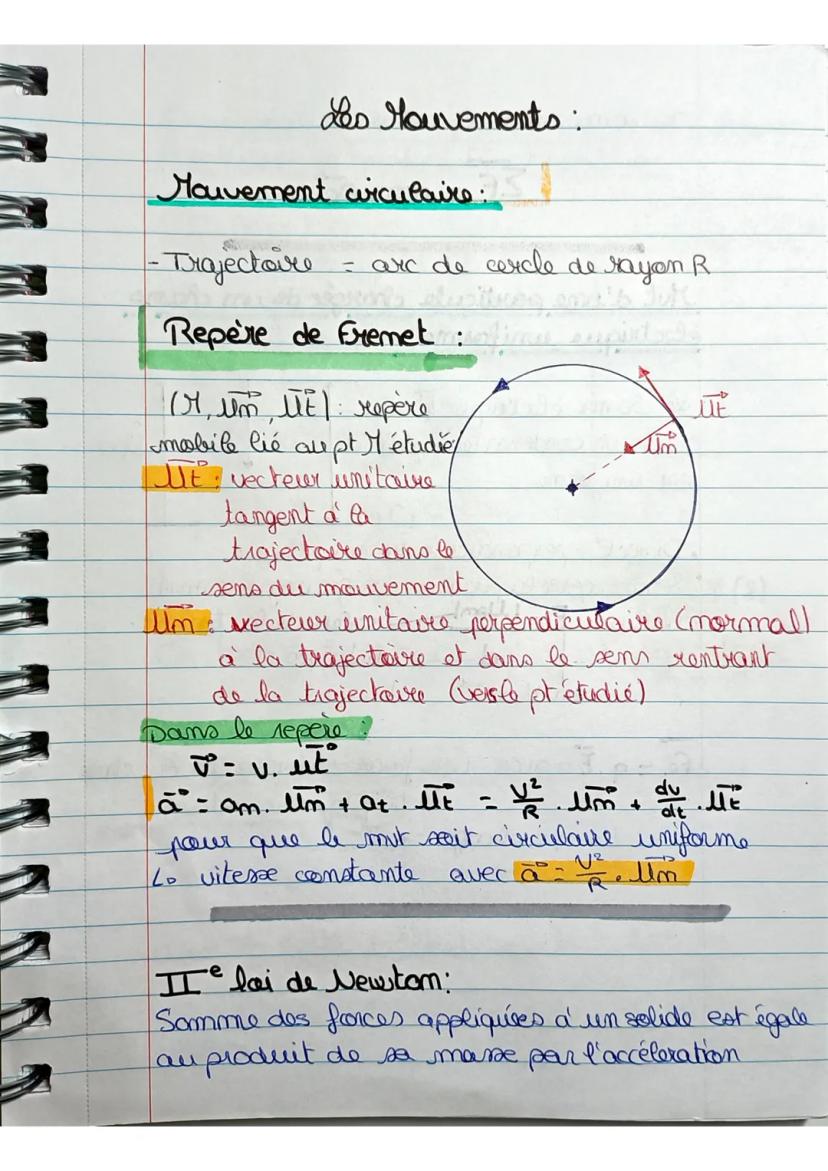 Les Mouvements :
Mouvement circulaire :
- Trajectoire = arc de cercle de rayon R
Repère de Frenet :
(M, un⃗, ut⃗) : repère
mobile lié au pt M étudié
ut⃗ : vecteur unitaire
tangent à la
trajectoire dans le
sens du mouvement
ut⃗
un⃗
un⃗ : vecteur unitaire perpendiculaire (normal)
à la trajectoire et dans le sens rentrant
de la trajectoire (vers le pt étudié)
Dans le repère :
v⃗ = v. ut⃗
a⃗ = an. un⃗ + at. ut⃗ = v²/R . un⃗ + dv/dt . ut⃗
pour que le mvt soit circulaire uniforme
↳ vitesse constante avec a⃗ = v²/R . un⃗
IIe loi de Newton :
Somme des forces appliquées à un solide est égale
au produit de sa masse par l'accéleration